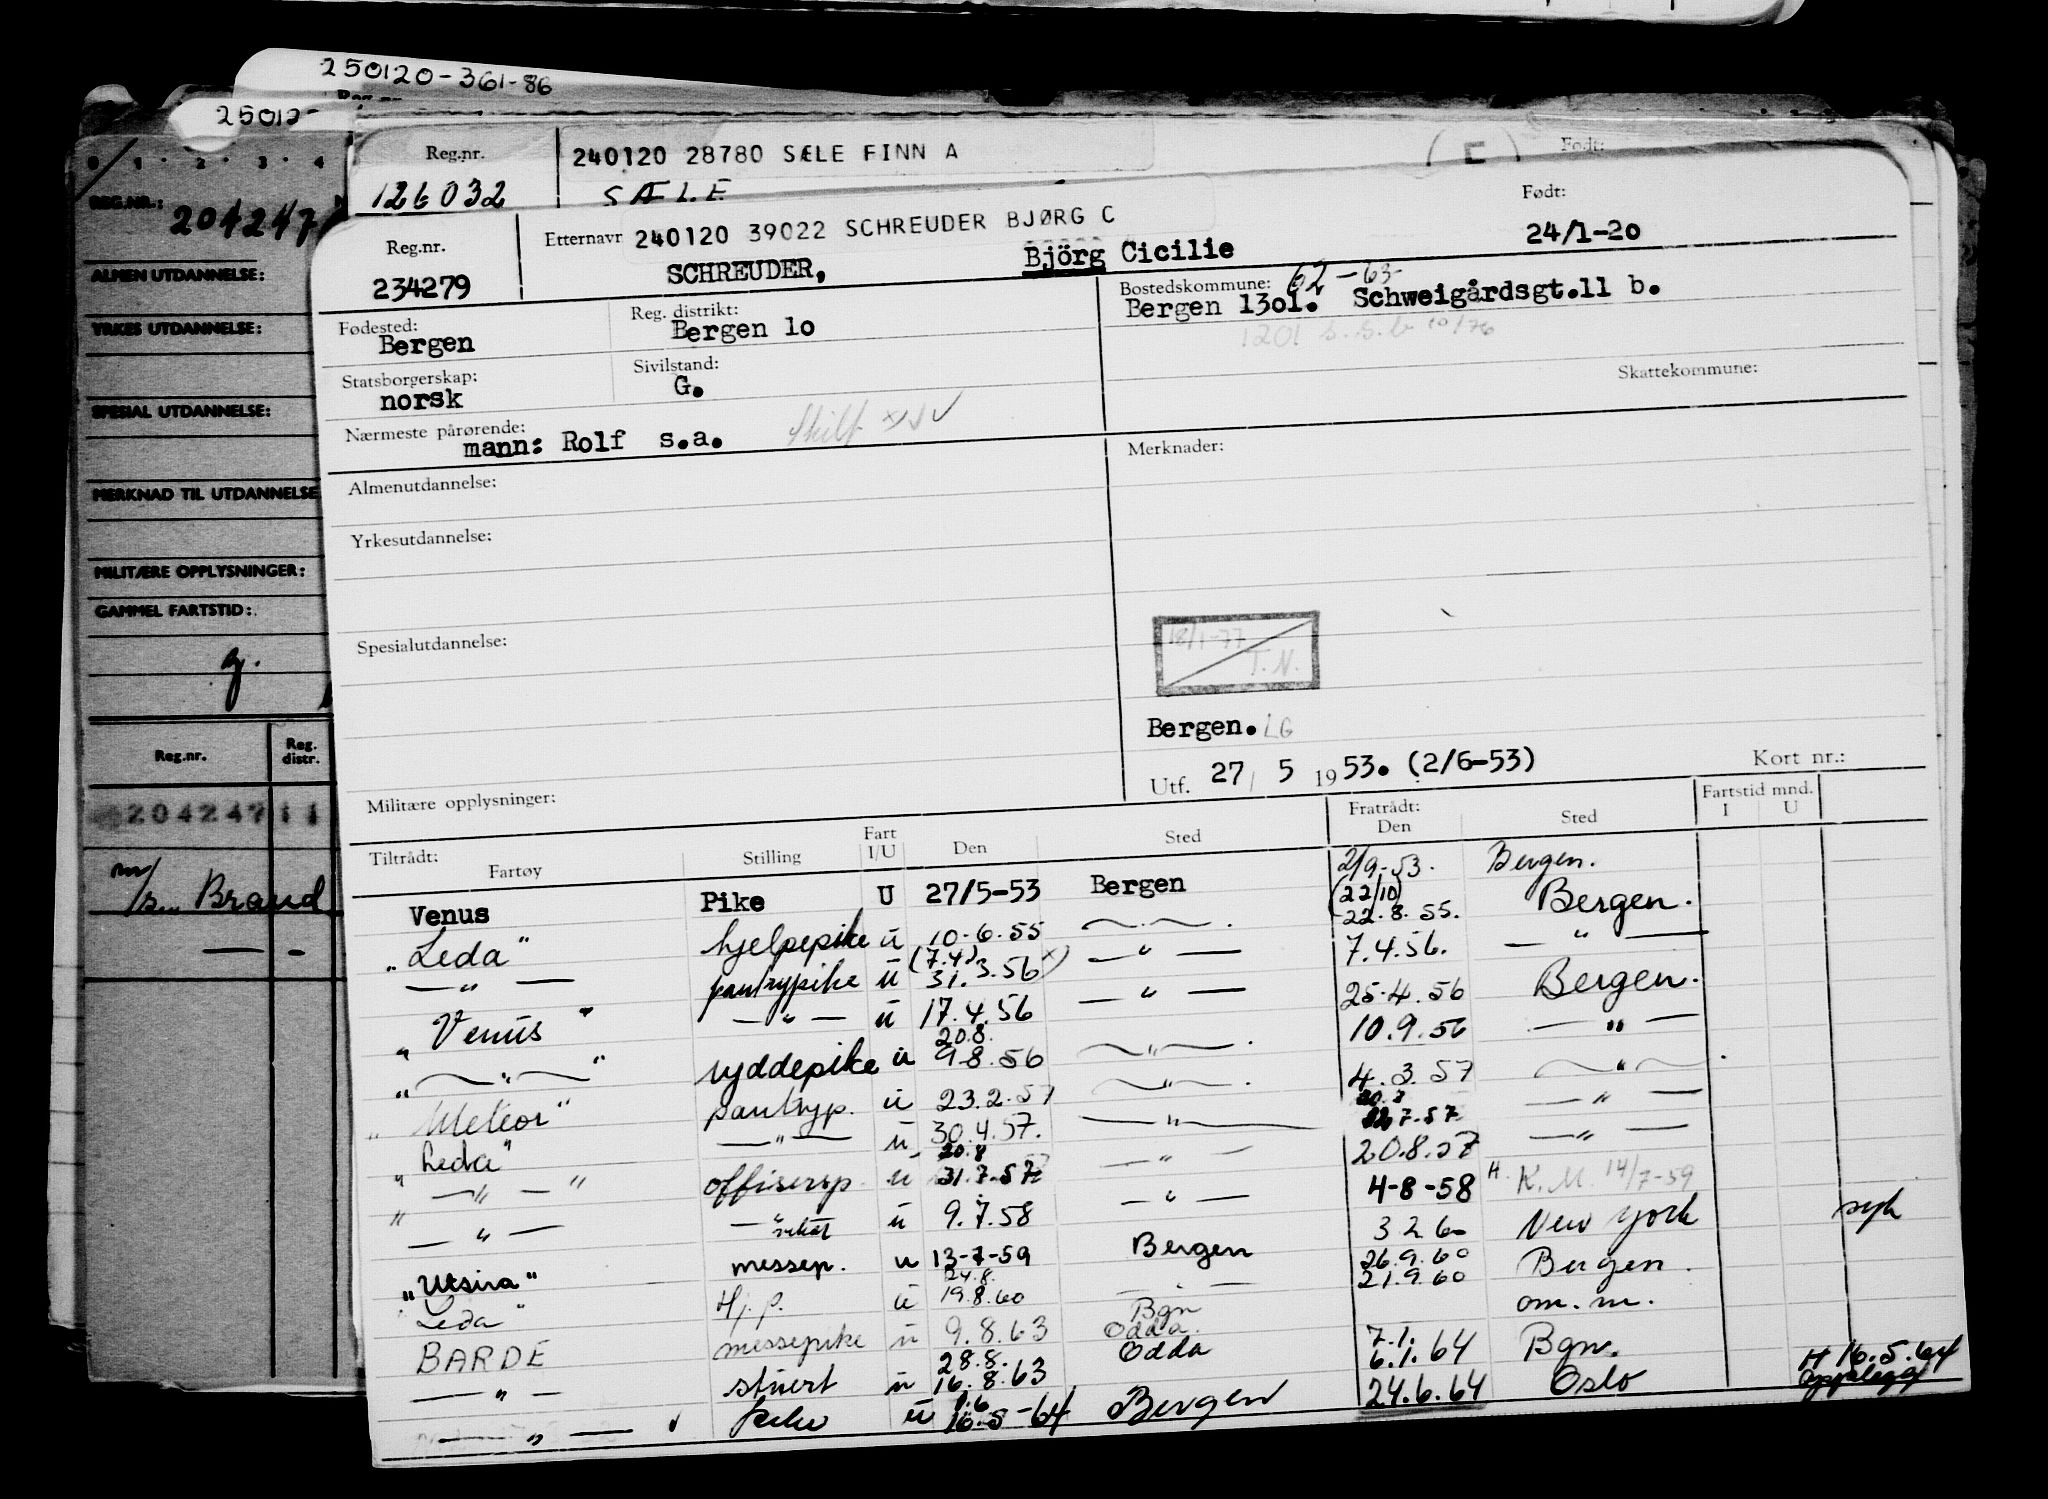 250120-361-86
Reg.nr.
25012-
0 · 1 · 2 · 3 · 4
REG.NR.:
204247
ALMEN UTDANNELSE:
YRKES UTDANNELSE:
SPESIAL UTDANNELSE:
MERKNAD TIL UTDANNELSE
MILITÆRE OPPLYSNINGER:
GAMMEL FARTSTID:
g.
Reg.nr. Reg. distr.
204247 11
m/s. Brand
Reg.nr. 240120 28780 SÆLE FINN A (E) Født:
126032 SÆLE
Født:
Reg.nr. Etternavn 240120 39022 SCHREUDER BJØRG C 24/1-20
234279 SCHREUDER, Björg Cicilie
Fødested: Reg. distrikt: Bostedskommune: 62-63
Bergen Bergen lo Bergen 13ol. Schweigårdsgt.ll b.
1201 s.s.b 10/76
Statsborgerskap: Sivilstand: Skattekommune:
norsk G.
Nærmeste pårørende: Merknader:
mann: Rolf s.a. skilt
Almenutdannelse:
Yrkesutdannelse:
Spesialutdannelse:
18/1-77
T.N.
Bergen. LG
Utf. 27/ 5 1953. (2/6-53)
Militære opplysninger: Kort nr.:
Tiltrådt: Fart Fratrådt: Fartstid mnd.
Fartøy Stilling I/U Den Sted Den Sted I U
Venus Pike U 27/5-53 Bergen 2/9-53. Bergen.
(22/10)
"Leda" hjelpepike u 10-6-55 —〃— 22.8.55. Bergen.
(7.4)
—〃— pantrypike u 31.3.56 x) —〃— 7.4.56. —〃—
"Venus" —〃— u 17.4.56 —〃— 25-4.56 Bergen.
20.8.
"—〃—" ryddepike u 9.8.56 —〃— 10.9.56 —〃—
"Meteor" pantryp. u 23.2.57 —〃— 4.3.57 —〃—
20.8
"Leda" —〃— u 30.4.57. —〃— 22.7.57 —〃—
20.8
"—〃—" offisersp. u 31.7.57 —〃— 20.8.57 —〃—
—〃— —〃— u 9.7.58 —〃— 4-8-58 H. K.M. 14/7-59
"Utsira" messep. u 13-7-59 Bergen 3 2 60 New York syk
24.8. 26.9.60
"Leda" Hj.p. u 19.8.60 —〃— 21.9.60 Bergen.
Bgn
BARDE messepike u 9.8.63 Odda. om.m.
28.8. 7.1.
—〃— stuert u 16.8.63 Odda 6.1.64 Bgn.
1.6 H 16.5.64
—〃— pike u 16.5-64 Bergen 24.6.64 Oslo